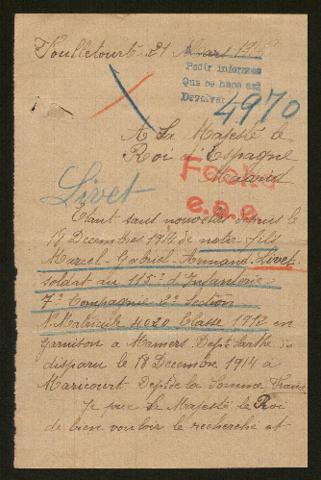 Foulletourt 21 Mars
Pedir informes
Que se hace así
Devolver
4970
A Sa Majesté le
Roi d'Espagne
Madrid
Fecha
e.a.e.
Livet
Etant sans nouvelles depuis le
18 Decembre 1914 de notre fils
Marcel Gabriel Armand Livet
soldat au 115e d'Infanterie
7e Compagnie 2e Section
N° Matricule 4020 Classe 1912 en
garnison a Mamers Dept Sarthe
disparu le 18 Decembre 1914 a
Maricourt Dept de la Somme France
Je prie Sa Majesté le Roi
de bien vouloir le recherché et